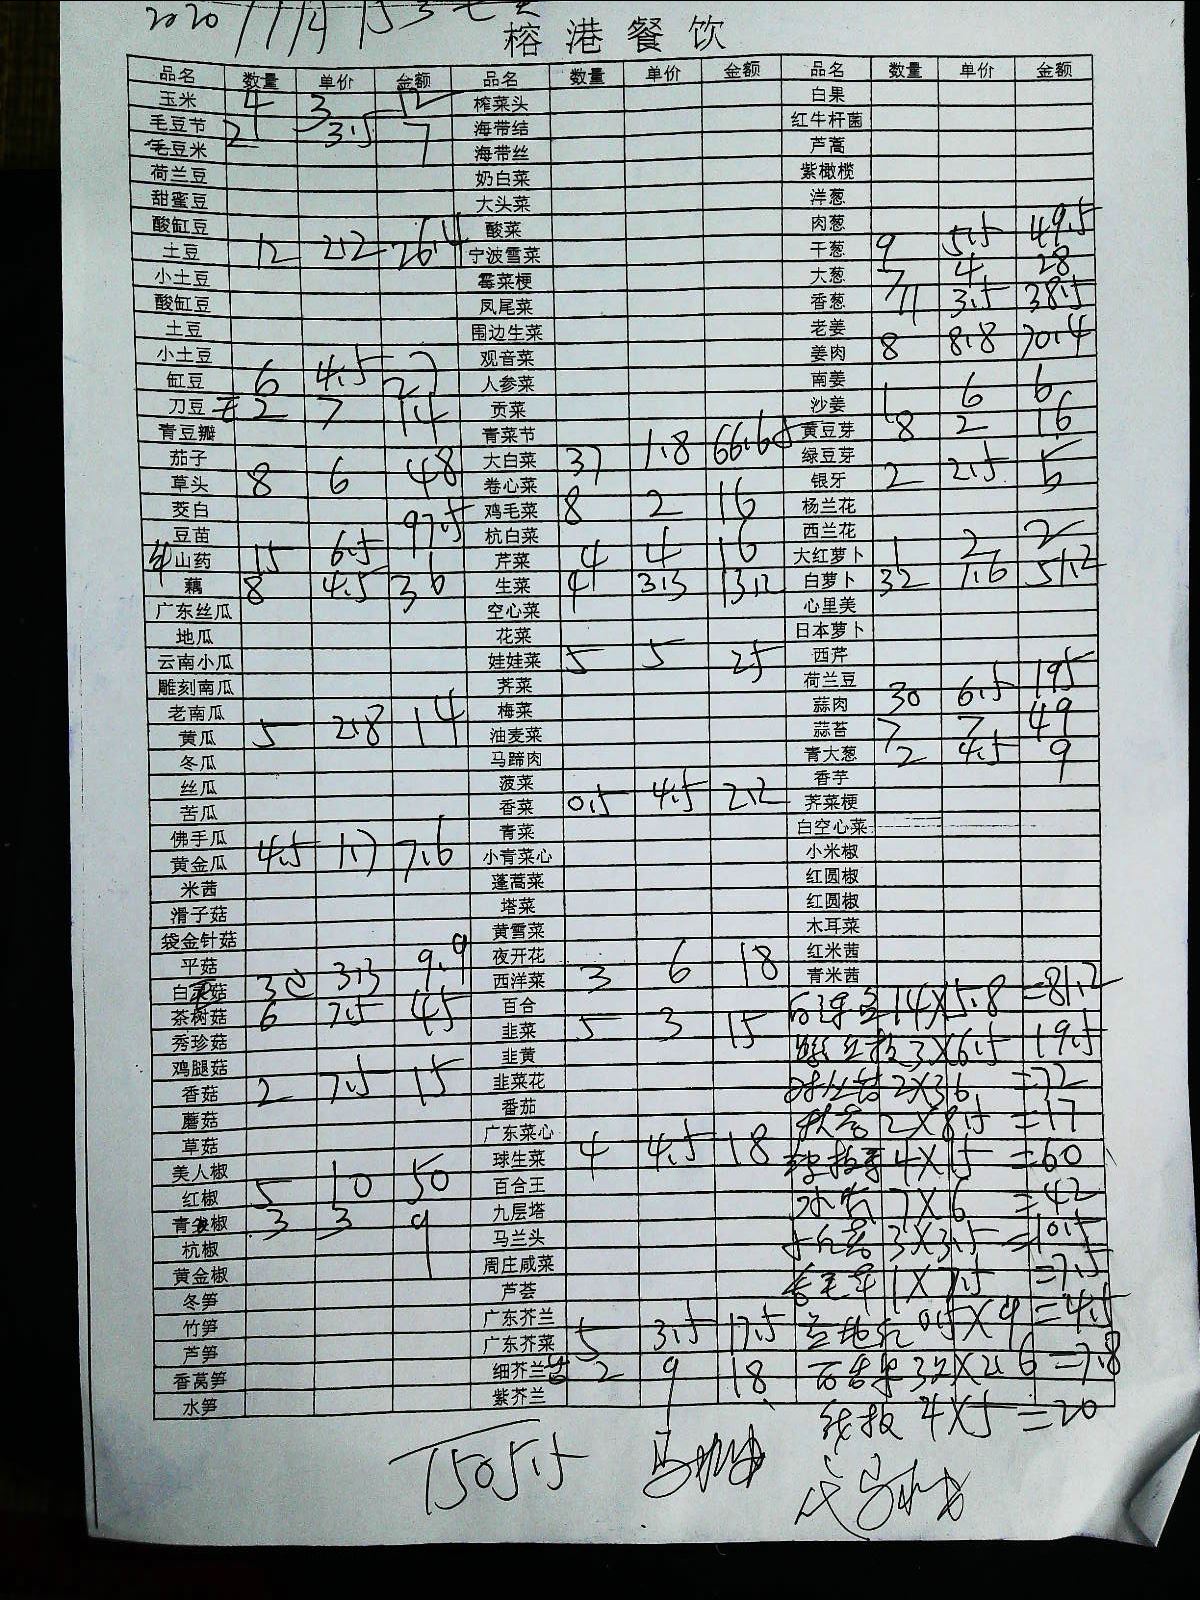 2020 11/4
榕港餐饮
品名 数量 单价 金额 品名 数量 单价 金额 品名 数量 单价 金额
玉米 4 3 12 榨菜头 白果
毛豆节 2 3.5 7 海带结 红牛杆菌
毛豆米 海带丝 芦蒿
荷兰豆 奶白菜 紫橄榄
甜蜜豆 大头菜 洋葱
酸缸豆 酸菜 肉葱
土豆 12 2.2 26.4 宁波雪菜 干葱 9 5.5 49.5
小土豆 霉菜梗 大葱 7 4 28
酸缸豆 凤尾菜 香葱 11 3.5 38.5
土豆 围边生菜 老姜
小土豆 观音菜 姜肉 8 8.8 70.4
缸豆 6 4.5 27 人参菜 南姜
刀豆 2 7 14 贡菜 沙姜 1 6 6
青豆瓣 青菜节 黄豆芽 8 2 16
茄子 大白菜 37 1.8 66.6 绿豆芽
草头 8 6 48 卷心菜 银牙 2 2.5 5
茭白 鸡毛菜 8 2 16 杨兰花
豆苗 杭白菜 西兰花
山药 15 6.5 97.5 芹菜 4 4 16 大红萝卜 1 2 2
藕 8 4.5 36 生菜 4 3.3 13.2 白萝卜 32 1.6 51.2
广东丝瓜 空心菜 心里美
地瓜 花菜 日本萝卜
云南小瓜 娃娃菜 5 5 25 西芹
雕刻南瓜 荠菜 荷兰豆
老南瓜 梅菜 蒜肉 30 6.5 195
黄瓜 5 2.8 14 油麦菜 蒜苔 7 7 49
冬瓜 马蹄肉 青大葱 2 4.5 9
丝瓜 菠菜 香芋
苦瓜 香菜 0.5 4.5 2.2 荠菜梗
佛手瓜 青菜 白空心菜
黄金瓜 4.5 1.7 7.6 小青菜心 小米椒
米茜 蓬蒿菜 红圆椒
滑子菇 塔菜 红圆椒
袋金针菇 黄雪菜 木耳菜
平菇 夜开花 红米茜
白灵菇 3 3.3 9.9 西洋菜 3 6 18 青米茜
茶树菇 6 7.5 45 百合 14X5.8 =81.2
秀珍菇 韭菜 5 3 15 3X6.5 19.5
鸡腿菇 韭黄
香菇 2 7.5 15 韭菜花 2X36 =72
蘑菇 番茄
草菇 广东菜心 2X8.5 =17
美人椒 球生菜 4 4.5 18 4X15 =60
红椒 5 10 50 百合王
青尖椒 3 3 9 九层塔 7X6 =42
杭椒 马兰头 3X3.5 =10.5
黄金椒 周庄咸菜
冬笋 芦荟 1X7.5 =7.5
竹笋 广东芥兰
芦笋 广东芥菜 5 3.5 17.5 0.5X9 =4.5
香莴笋 细芥兰 2 9 18 =7.8
水笋 紫芥兰
线椒 4X5 =20
1505.5